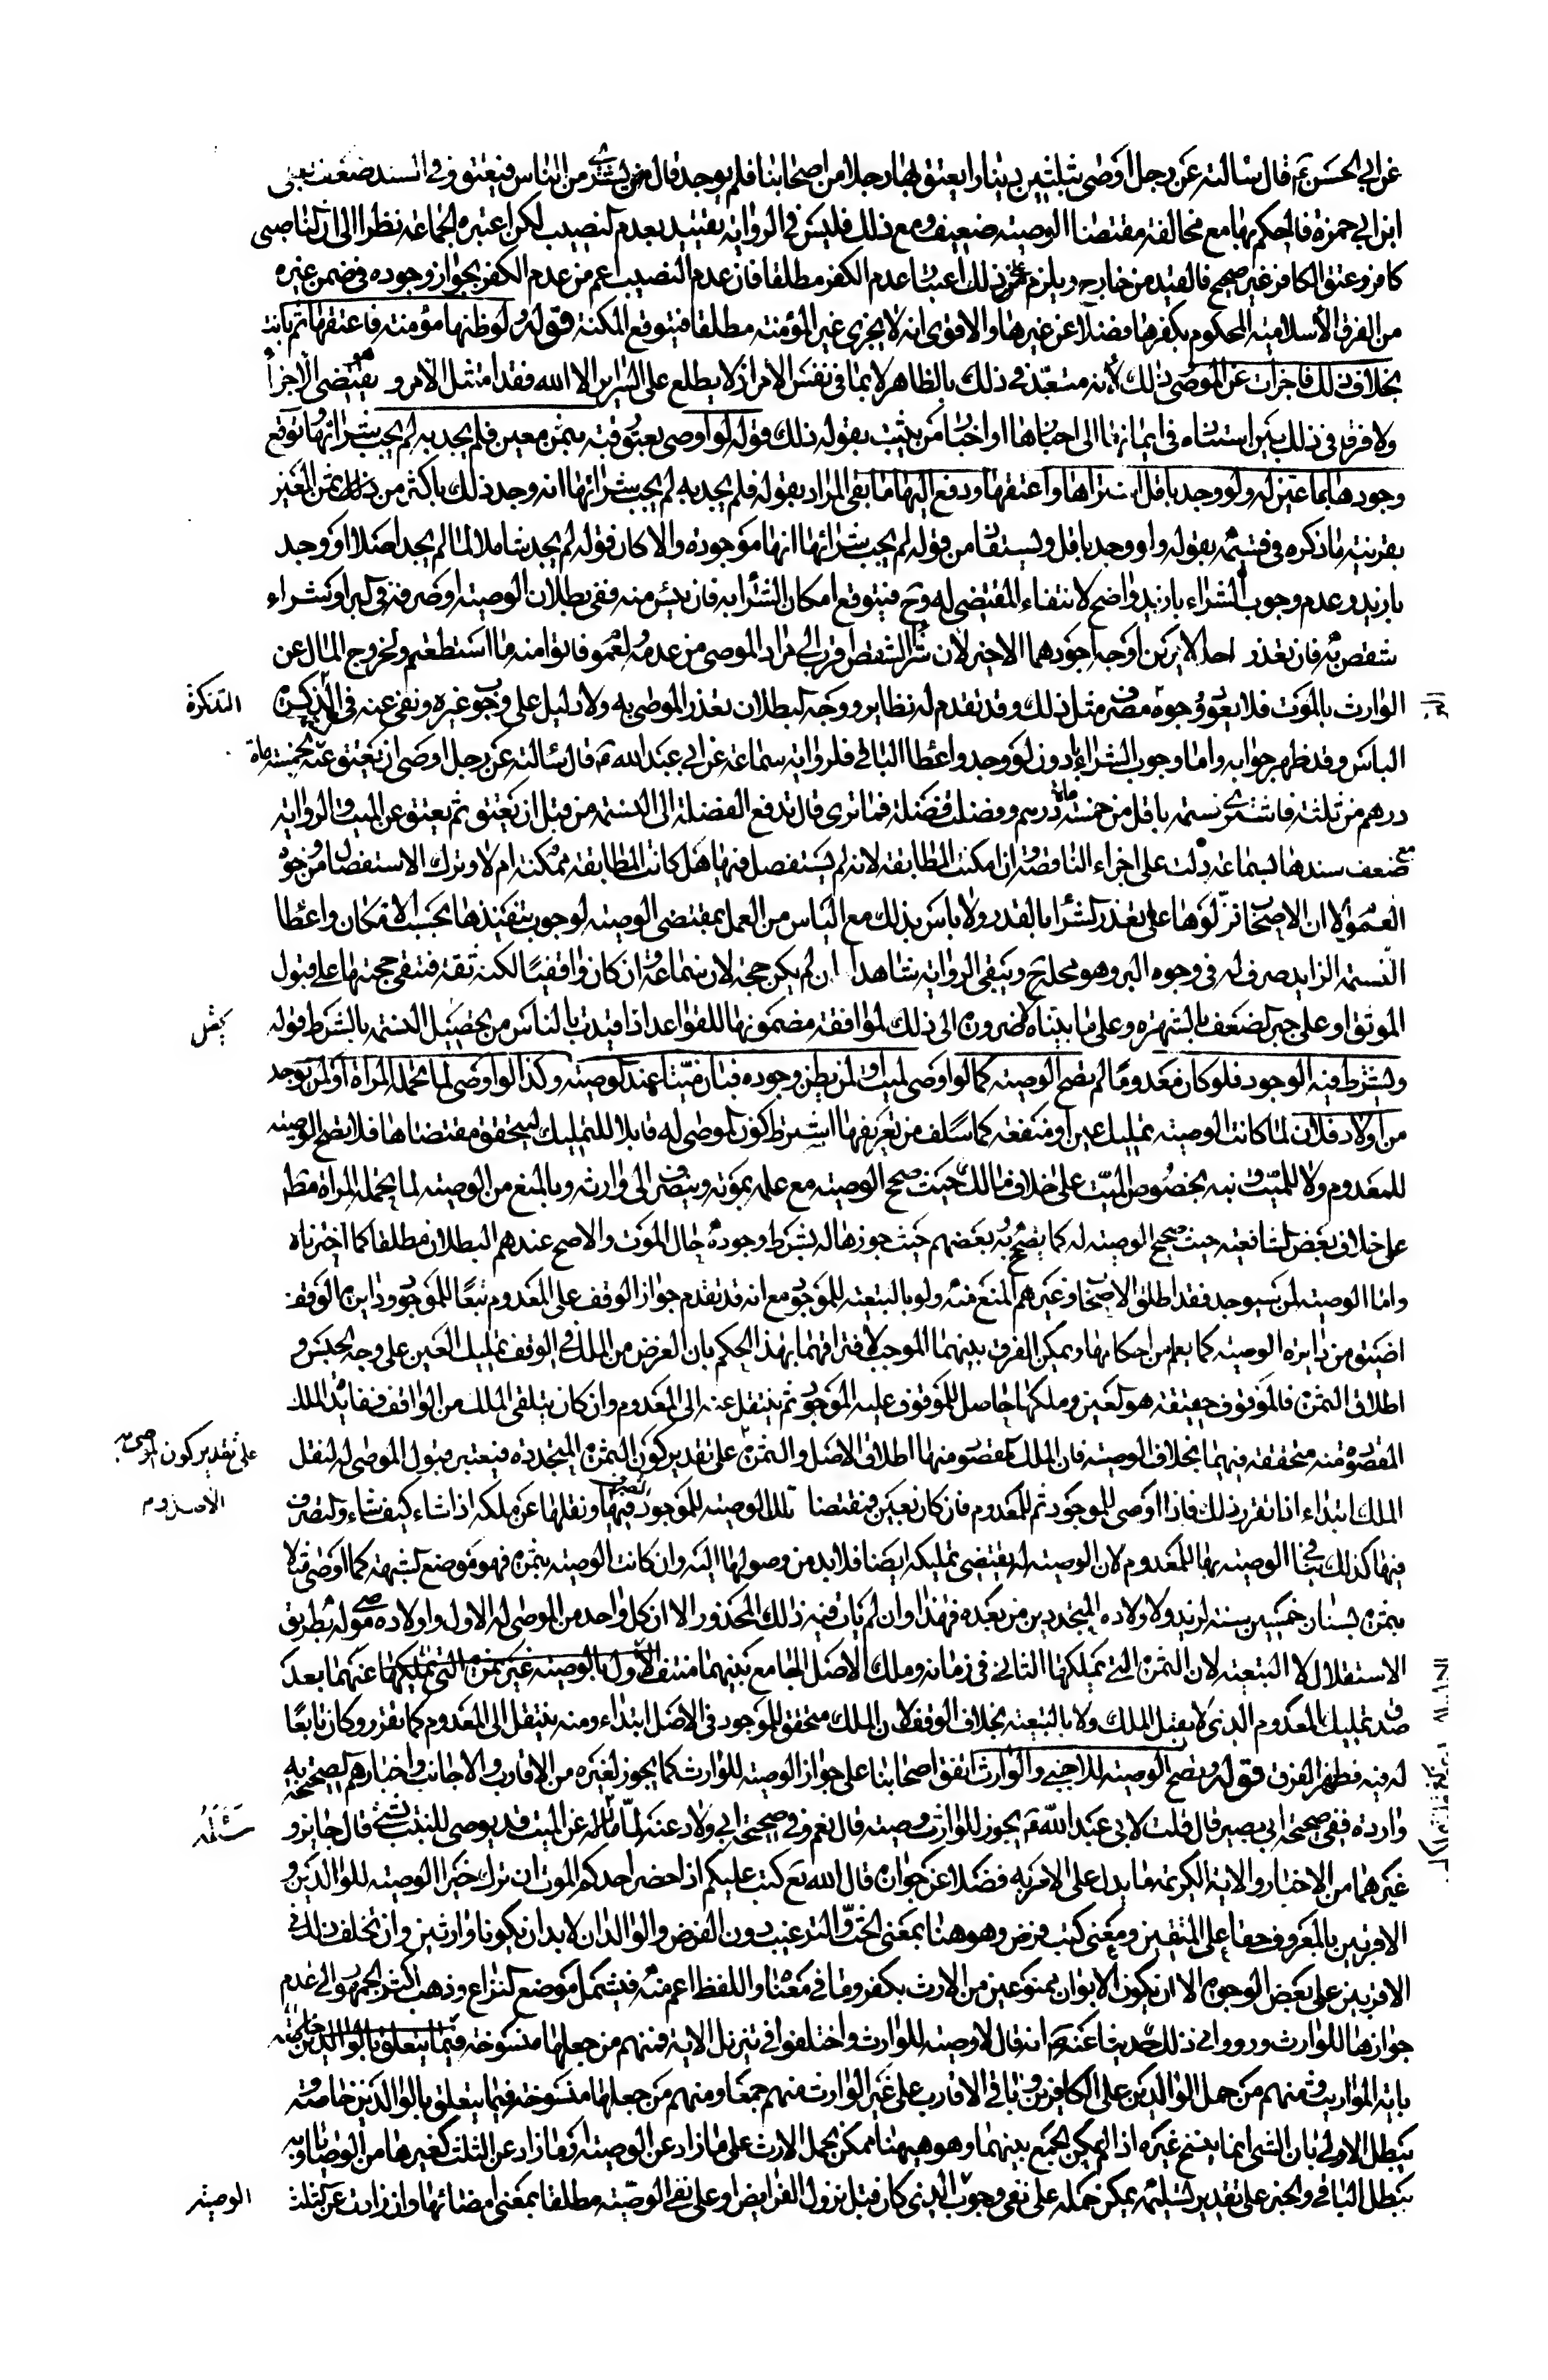 عن ابي الحسن ع قال سالته عن رجل اوصى بثلثين دينارا يعتق بها رجلا من اصحابنا فلم يوجد قال يشترى من الناس فيعتق وفي السند ضعف بعلي
ابن ابي حمزة فالحكم بها مع مخالفة مقتضاها الوصية ضعيف ومع ذلك فليس في الرواية تقييد بعدم النصيب لكن اعتبره الجماعة نظرا الى ان الناصبي
كافر وعتق الكافر غير صحيح فالقيد من خارج ويلزم من ذلك اعتبار عدم الكفر مطلقا فان عدم النصب اعم من عدم الكفر بجواز وجوده في ضمن غيره
من الفرق الاسلامية المحكوم بكفرها فضلا عن غيرها والاقوى انه لا يجزي غير المؤمنة مطلقا فيتوقع المكنة قوله ولو ظنها مؤمنة فاعتقها ثم بانت
بخلاف ذلك فاجزات عن الموصى ذلك لانه متعبد في ذلك بالظاهر لا بما في نفس الامر اذ لا يطلع على السراير الا الله فقد امتثل الامر وهو يقتضي الاجزا
ولا فرق في ذلك بين استناده في ايمانها الى اخبارها او اخبار من يثبت بقوله ذلك قوله لو اوصى بعتق رقبة بثمن معين فلم يجد به لم يجب شرائها وتوقع
وجودها بما عين له ولو وجد باقل اشتراها واعتقها ودفع اليها ما بقي المراد بقوله فلم يجد به لم يجب شرائها انه وجد ذلك باكثر من ذلك الثمن المعين
بقرينة ما ذكره في قسيمه بقوله ولو وجد باقل ويستفاد من قوله لم يجب شرائها انها موجودة والا كان قوله لم يجد شاملا لما لم يجد اصلا او وجد
بازيد وعدم وجوب الشراء بازيد واضح لانتفاء المقتضي له وح فيتوقع امكان الشراء به فان يئس منه ففي بطلان الوصية او صرفه في البر او شراء
شقص به فان تعذر احد الامرين اوجه اجودهما الاخير لان شراء الشقص اقرب الى مراد الموصي من عدمه لعموم فاتوا منه ما استطعتم ولخروج المال عن
الوارث بالموت فلا يعود ووجوه مصرف مثل ذلك وقد تقدم له نظاير ووجه البطلان تعذر الموصى به ولا دليل على وجوب غيره ونفى عنه في التذكرة
التذكرة
الباس وقد ظهر جوابه واما وجوب الشراء بادون لو وجد واعطا الباقي فلرواية سماعة عن ابي عبد الله ع قال سالته عن رجل اوصى ان يعتق عنه بخمسماة
درهم من ثلثه فاشترى نسمة باقل من خمسماة درهم وفضلت فضلة فما ترى قال تدفع الفضلة الى النسمة من قبل ان يعتق ثم يعتق عن الميت والرواية
مع ضعف سندها بسماعة دلت على اجزاء الناقصة وان امكنت المطابقة لانه لم يستفصل فيها هل كانت المطابقة ممكنة ام لا وترك الاستفصال من وجوه
العموم الا ان الاصحاب نزلوها على تعذر الشراء بالقدر ولا باس بذلك مع الياس من العمل بمقتضى الوصية لوجوب تنفيذها بحسب الامكان واعطا
النسمة الزايد صرف له في وجوه البر وهو محله ح ويبقى الرواية شاهدا ان لم يكن حجة لان سماعة وان كان واقفيا لكنه ثقة فتبقى حجتها على قبول
الموثق او على جبر الضعف بالشهرة وعلى ما بيناه لا ضرورة الى ذلك لموافقة مضمونها للقواعد اذا قيدت بالياس من تحصيل النسمة بالشرط قوله
ويشترط فيه الوجود فلو كان معدوما لم تصح الوصية كما لو اوصى لميت او لمن يظن وجوده فبان ميتا عند الوصية وكذا لو اوصى لما تحمله المراة او لمن يوجد
من اولاد فلان لما كانت الوصية تمليك عين او منفعة كما سلف من تعريفها اشترط كون الموصى له قابلا للتمليك ليتحقق مقتضاها فلا تصح الوصية
للمعدوم ولا للميت ونبه بخصوص الميت على خلاف مالك حيث صحح الوصية مع علمه بموته ويصرف الى وارثه وبالمنع من الوصية لما تحمله المراة مطلقا
على خلاف بعض الشافعية حيث صحح الوصية له كما يصح به بعضهم حيث جوزها له بشرط وجوده حال الموت والاصح عندهم البطلان مطلقا كما اخترناه
واما الوصية لمن سيوجد فقد اطلق الاصحاب وغيرهم المنع منه ولو بالتبعية للموجود مع انه قد تقدم جواز الوقف على المعدوم تبعا للموجود ودايرة الوقف
اضيق من دايرة الوصية كما يعلم من احكامها ويمكن الفرق بينهما الموجب لافتراقهما بهذا الحكم بان الغرض من الملك في الوقف تمليك العين على وجه الحبس و
اطلاق الثمرة فالموقوف حقيقة هو العين وملكها حاصل للموقوف عليه الموجود ثم ينتقل عنه الى المعدوم وان كان يتلقى الملك من الواقف ففايدة الملك
المقصودة منه متحققة فيهما بخلاف الوصية فان الملك المقصود منها اطلاق الاصل والثمرة على تقدير كون الثمرة المتجددة فيعتبر قبول الموصى له لنقل
على تقدير كون الموصى به
الاصل دوم
الملك ابتداء اذا تقرر ذلك فاذا اوصى للموجود ثم للمعدوم فان كان بعين فمقتضا تلك الوصية للموجود التصرف فيها ونقلها عن ملكه اذا شاء كيف شاء والتصرف
فيها كذلك ينافي الوصية بها للمعدوم لان الوصية له يقتضي تمليكه ايضا فلا بد من وصولها اليه وان كانت الوصية بثمرة فهو موضع الشبهة كما لو اوصى مثلا
بثمرة بستان خمسين سنة لزيد ولاولاده المتجددين من بعده فهذا وان لم يات فيه ذلك المحذور الا ان كل واحد من الموصى له الاول واولاده موصى له بطريق
الاستقلال لا التبعية لان الثمرة التي تملكها الثاني في زمانه وملك الاصل الجامع بينهما منتف الاول بالوصية غير ثمرة التي تملكها عنهما بعد
قصد تمليك المعدوم الذي لا يقبل الملك ولا بالتبعية بخلاف الوقف لان الملك متحقق للموجود في الاصل ابتداء ومنه ينتقل الى المعدوم كما تقرر وكان تابعا
له فيه فظهر الفرق قوله وتصح الوصية للاجنبي والوارث اتفق اصحابنا على جواز الوصية للوارث كما يجوز لغيره من الاقارب والاجانب واخبارهم الصحيحة به
واردة ففي صحيحة ابي بصير قال قلت لابي عبد الله ع يجوز للوارث وصية قال نعم وفي صحيحة ابي ولاد عنه لما ساله عن الميت قد يوصي للبنت بشيء قال جايز و
غيرهما من الاخبار والاية الكريمة ما يدل على الامر به فضلا عن جوازه قال الله تع كتب عليكم اذا حضر احدكم الموت ان ترك خيرا الوصية للوالدين و
الاقربين بالمعروف حقا على المتقين ومعنى كتب فرض وهو هنا بمعنى الحث والترغيب دون الفرض والوالدان لابد ان يكونا وارثين وان تخلف ذلك في
الاقربين على بعض الوجوه الا ان يكون الابوان ممنوعين من الارث بكفر وما في معناه واللفظ اعم منه فيشمل موضع النزاع وذهب اكثر الجمهور الى عدم
جوازها للوارث ورووا في ذلك حديثا عنه ص انه قال لا وصية للوارث واختلفوا في تنزيل الاية فمنهم من جعلها منسوخة فيما يتعلق بالوالدين خاصة
باية المواريث ومنهم من حمل الوالدين على الكافرين وباقي الاقارب على غير الوارث منهم جمعا ومنهم من جعلها منسوخة فيما يتعلق بالوالدين خاصة و
يبطل الاول بان الشيء انما ينسخ غيره اذا لم يمكن الجمع بينهما وهو هيهنا ممكن بحمل الارث على ما زاد عن الوصية او ما زاد عن الثلث كغيرها من الوصايا وبه
يبطل الباقي والخبر على تقدير تسليمه يمكن حمله على نفي وجوب الذي كان قبل نزول الفرايض او على نفي الوصية مطلقا بمعنى امضائها وان زادت عن الثلث
الوصية